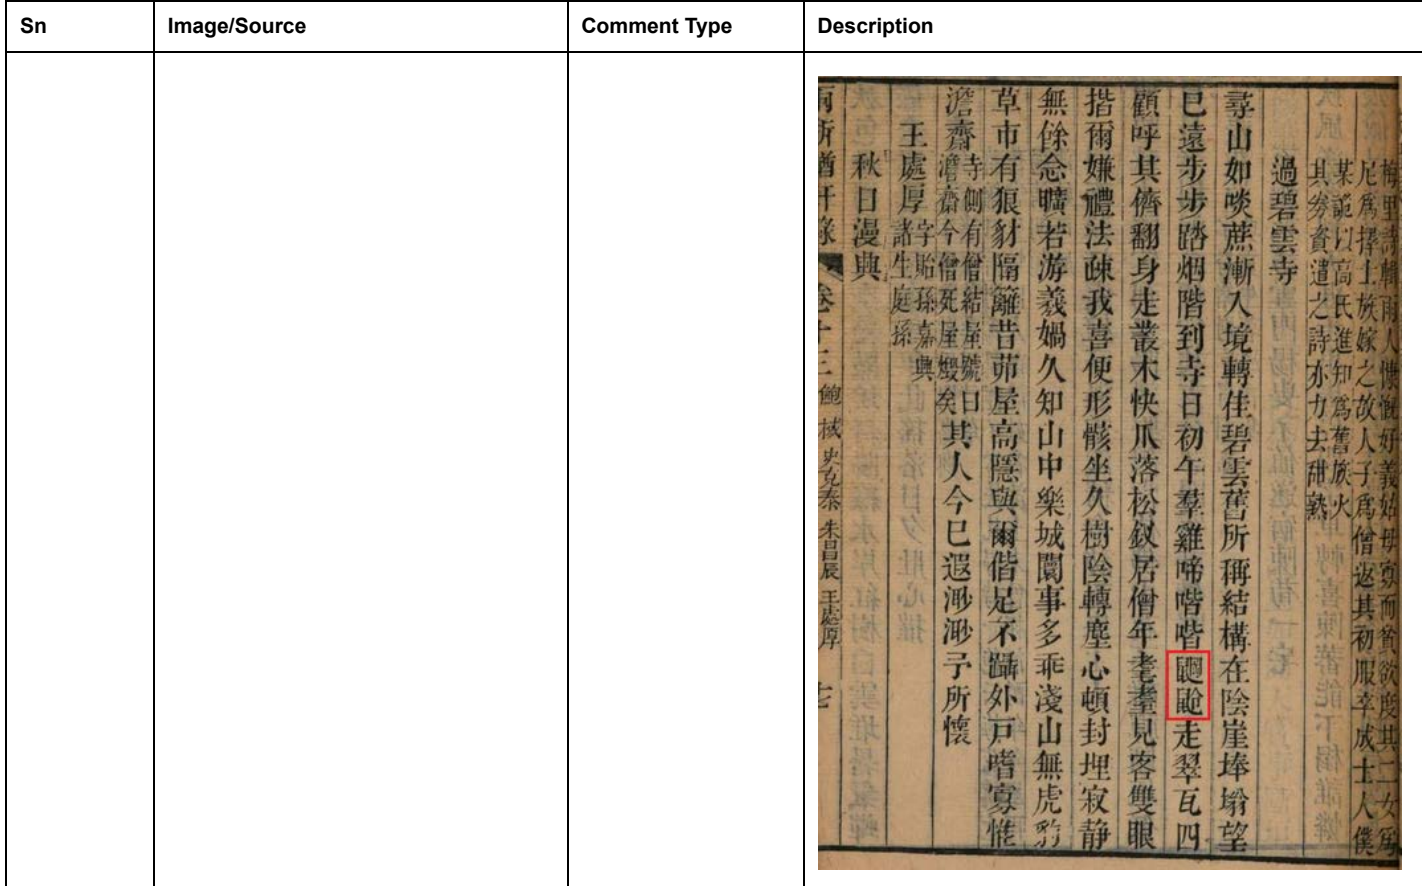 Sn
Image/Source
Comment Type
Description
梅里詩輯雨人慷慨好義姑母寡而貧欲度其二女爲
尼爲擇士族嫁之故人子爲僧返其初服卒成士人僕
某詭以高氏進知爲舊族火
其券資遣之詩亦力去甜熟
過碧雲寺
尋山如啖蔗漸入境轉佳碧雲舊所稱結構在陰崖埲塕望
巳遠步步踏烟階到寺日初午羣雞啼喈喈走翠瓦四
顧呼其儕翻身走叢木快爪落松釵居僧年耄耋見客雙眼
揩爾嫌禮法疎我喜便形骸坐久樹陰轉塵心頓封埋寂静
無餘念曠若游羲媧久知山中樂城闤事多乖淺山無虎豹
草市有狼豺隔籬昔茆屋高隱與爾偕足不躡外戸嗜寡惟
澹齋
寺側有僧結屋號曰
澹齋今僧死屋燬矣
其人今巳遐渺渺予所懷
王處厚
字貽孫嘉興
諸生庭孫
秋日漫興
兩浙輶軒錄 卷十三 鮑棫 史克泰 朱昌辰 王處厚 七